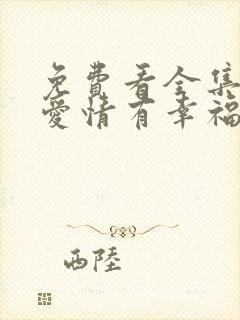 免費看全集
愛情有幸福
西陸